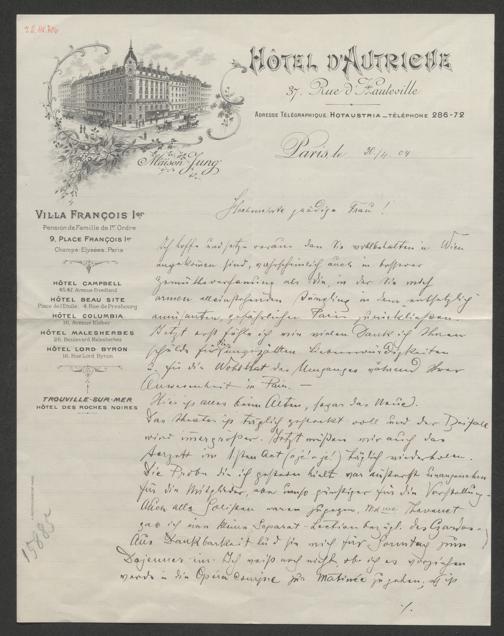 HÔTEL D'AUTRICHE
37. Rue d'Hauteville
ADRESSE TÉLÉGRAPHIQUE HOTAUSTRIA _ TÉLÉPHONE 286-72
Maison Jung
Paris, le 20/4 04
VILLA FRANÇOIS Ier
Pension de Famille de 1er Ordre
9, PLACE FRANÇOIS Ier
Champs-Elysées, Paris
HÔTEL CAMPBELL
45.47, Avenue Friedland
HÔTEL BEAU SITE
Place de l'Etoile, 4, Rue de Presbourg
HÔTEL COLUMBIA
16, Avenue Kléber
HÔTEL MALESHERBES
26, Boulevard Malesherbes
HÔTEL LORD BYRON
16, Rue Lord Byron
TROUVILLE-SUR-MER
HÔTEL DES ROCHES NOIRES
Hochverehrte gnädige Frau!
Ich hoffe und setze voraus dass Sie wohlbehalten in Wien
angekommen sind, wahrscheinlich auch in besserer
Gemüthsverfassung als die, in der Sie mich
armen alleinstehenden Jüngling in dem entsetzlich
amüsanten, gefährlichen Paris zurückliessen
Jetzt erst fühle ich wie vielen Dank ich Ihnen
schulde für die ungezählten Liebenswürdigkeiten
u. für die Wohlthat des Umganges während Ihrer
Anwesenheit in Paris. —
Hier ist alles beim Alten, sogar das Neue.
Das Theater ist täglich gesteckt voll und der Beifall
wird immer grösser. Jetzt müssen wir auch das
Terzett im 1sten Act (oje oje!) täglich wiederholen.
Die Probe die ich gestern hielt war äusserst unangenehm
für die Mitglieder, aber umso günstiger für die Vorstellung.
Auch alle Solisten waren zugegen.
gab ich eine kleine Separat-Lection bezügl. des Czardas.
Aus Dankbarkeit lud sie mich für Sonntag zum
Dejeuner ein. Ich weiß noch nicht, ob ich es vorziehen
werde in die Opéra comique zur Matinée zu gehen, es ist
./.
1588